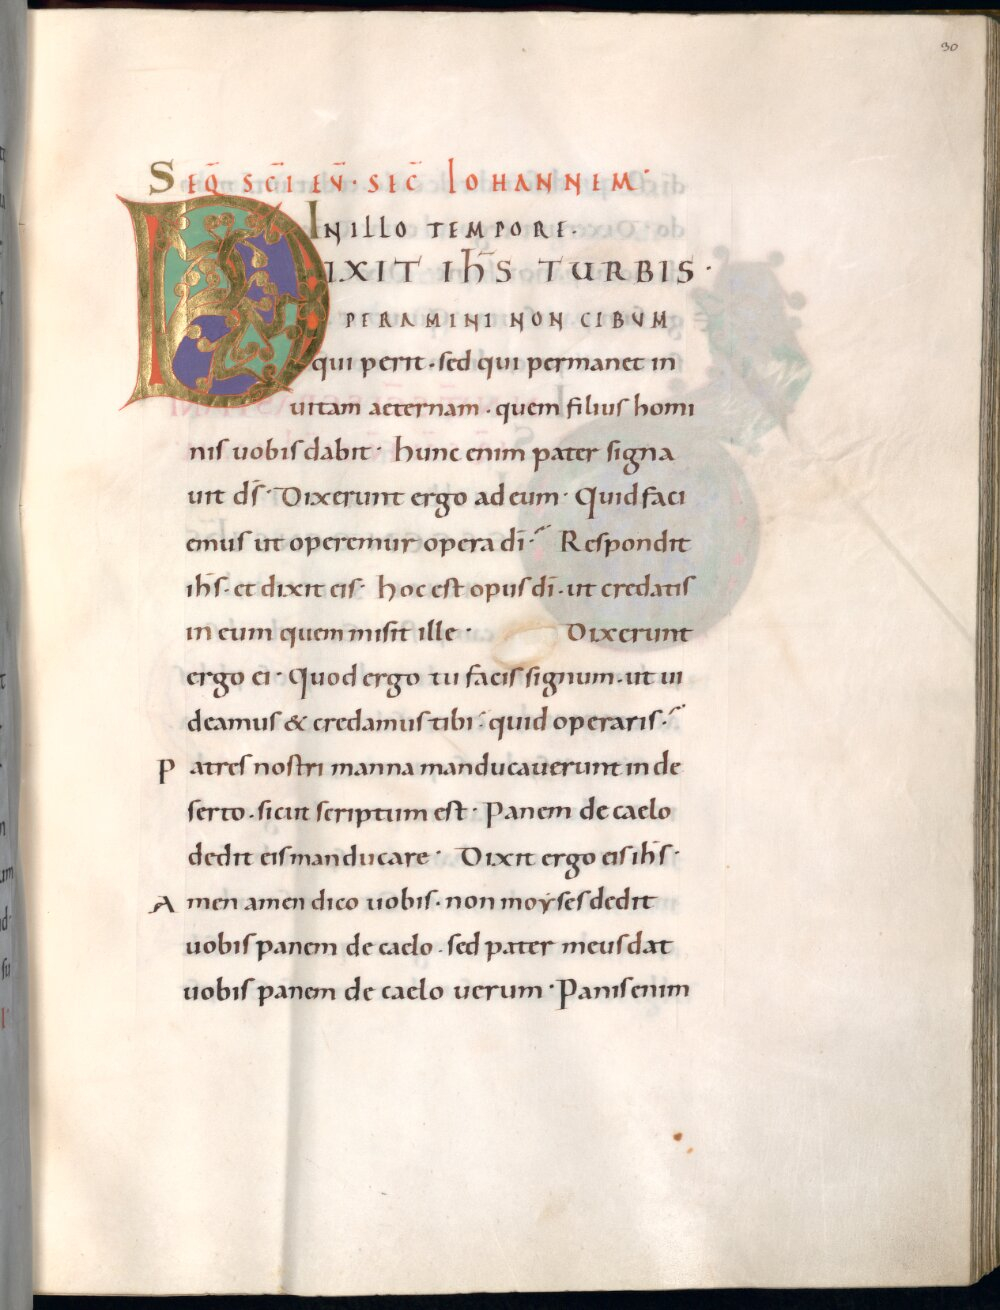 30
SEQ̄ SC̄I EN̄· SEC̄ IOHANNEM·
IN ILLO TEMPORE·
DIXIT IHS̄ TURBIS·
PERAMINI NON CIBVM
qui perit· sed qui permanet in
uitam aeternam· quem filius homi
nis uobis dabit· hunc enim pater signa
uit d̄s· Dixerunt ergo ad eum· Quid faci
emus ut operemur opera dī· Respondit
ih̄s· et dixit eis· hoc est opus dī· ut credatis
in eum quem misit ille· Dixerunt
ergo ei· Quod ergo tu facis signum· ut ui
deamus & credamus tibi· quid operaris·
Patres nostri manna manducauerunt in de
serto· sicut scriptum est· Panem de caelo
dedit eis manducare· Dixit ergo eis ih̄s·
Amen amen dico uobis· non moẏses dedit
uobis panem de caelo· sed pater meus dat
uobis panem de caelo uerum· Panis enim